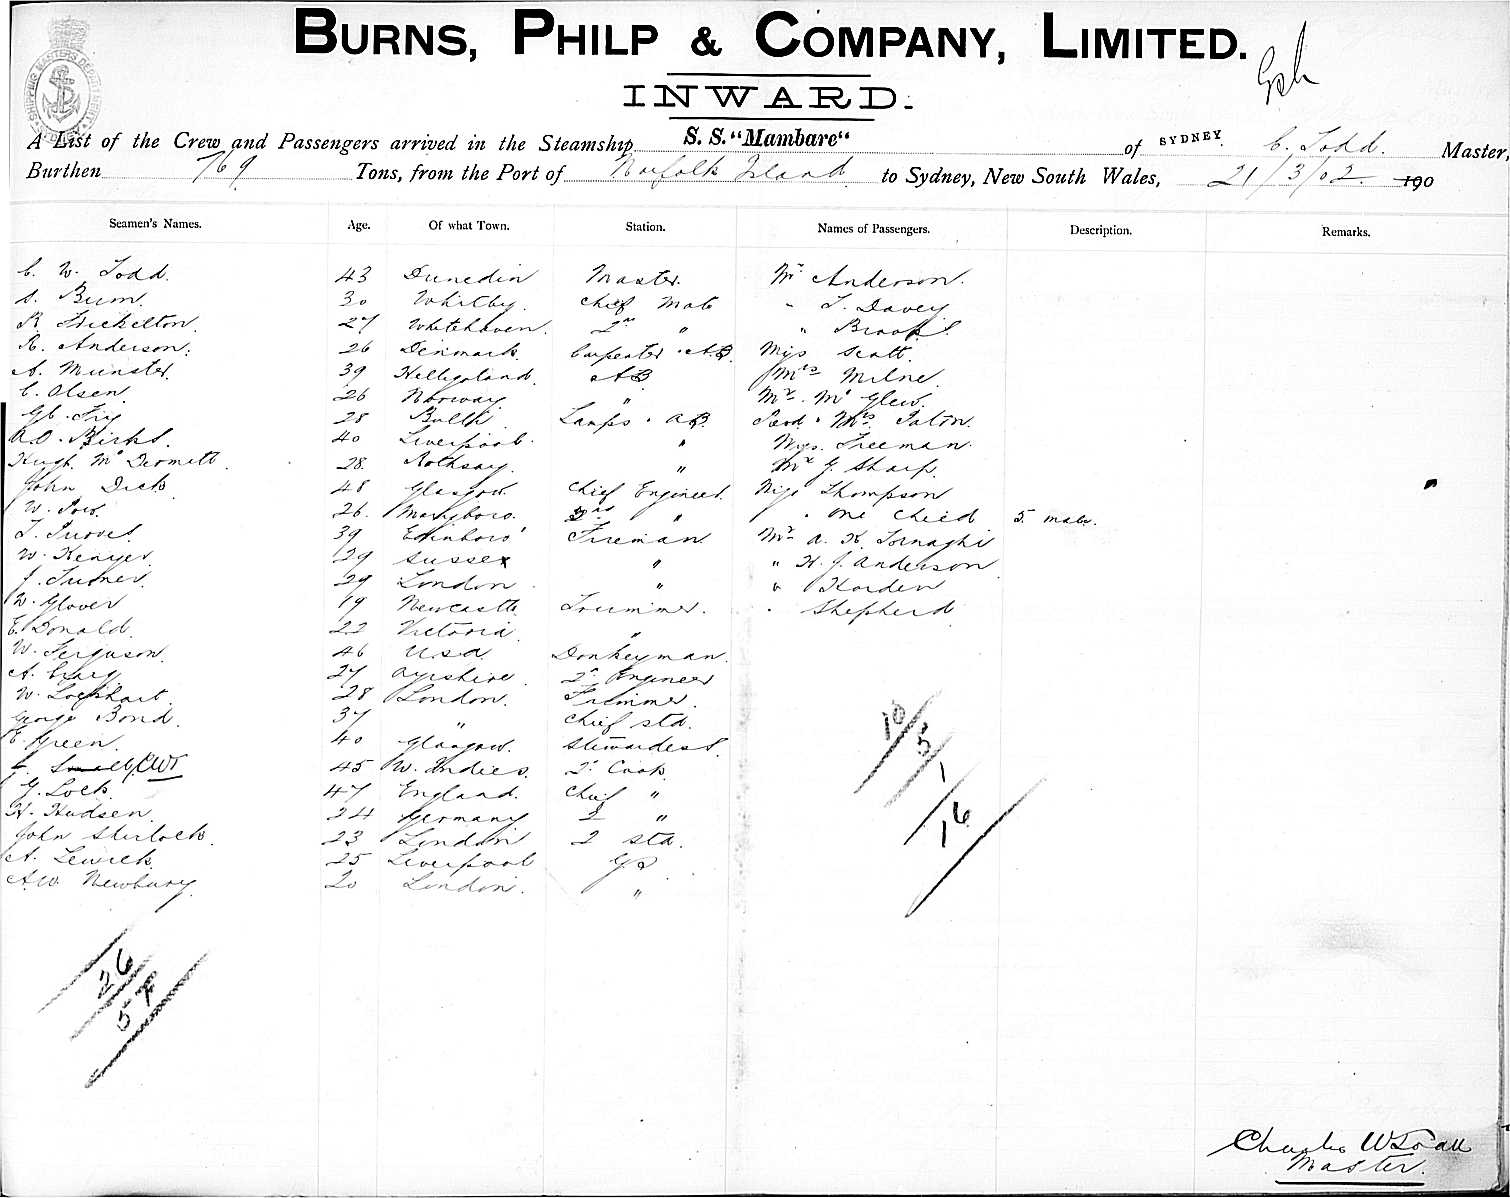 BURNS, PHILP & COMPANY, LIMITED.
INWARD.
A List of the Crew and Passengers arrived in the Steamship S. S. "Mambare" of SYDNEY. C. Todd. Master,
Burthen 769 Tons, from the Port of Norfolk Island to Sydney, New South Wales, 21/3/02 190
Seamen's Names. Age. Of what Town. Station. Names of Passengers. Description. Remarks.
C. W. Todd. 43 Dunedin Master. Mr Anderson.
S. 30 Whitby. Chief Mate " T. Davey
R. Frickelton. 27 Whitehaven. 2nd " "
R. Anderson. 26 Denmark. Carpenter . AB. Miss Scott.
A. Munster. 39 Heligoland. AB Mrs Milne.
C. Olsen. 26 Norway. " Mr. Mc Glew.
Fry 28 Bulli Lamps . AB. Mrs Paton.
A.O. Birks. 40 Liverpool. " Miss Freeman.
Hugh Mc Dermott. 28. Rothsay. " Mr G. Sharp.
John Dick 48 Glasgow. Chief Engineer. Miss Thompson
W. 26. Maryboro. 2nd " " One Child 5. male.
T. 39 Edinboro' Fireman. Mr A. K. Tornaghi
W. Kenyer. 29 Sussex " " H. J. Anderson
J. Turner. 29 London " " Harden
W. Glover 19 Newcastle Trimmer. " Shepherd
E. Donald. 22 Victoria. "
W. Ferguson. 46 U.S.A. Donkeyman.
A. Craig 27 Ayrshire. 2nd Engineer
W. Lockhart. 28 London. Trimmer.
George Bond. 37 " Chief Std.
E. Green. 40 Glasgow. Stewardess.
Small CWT 45 W. Indies. 2nd Cook.
G. Lock. 47 England. Chief "
H. Hudsen. 24 Germany 2 "
John Sherlock. 23 London 2 Std.
A. 25 Liverpool GS
A.W. Newbury. 20 London. "
10/
5
1
16
26
57
Charles W Todd
Master.